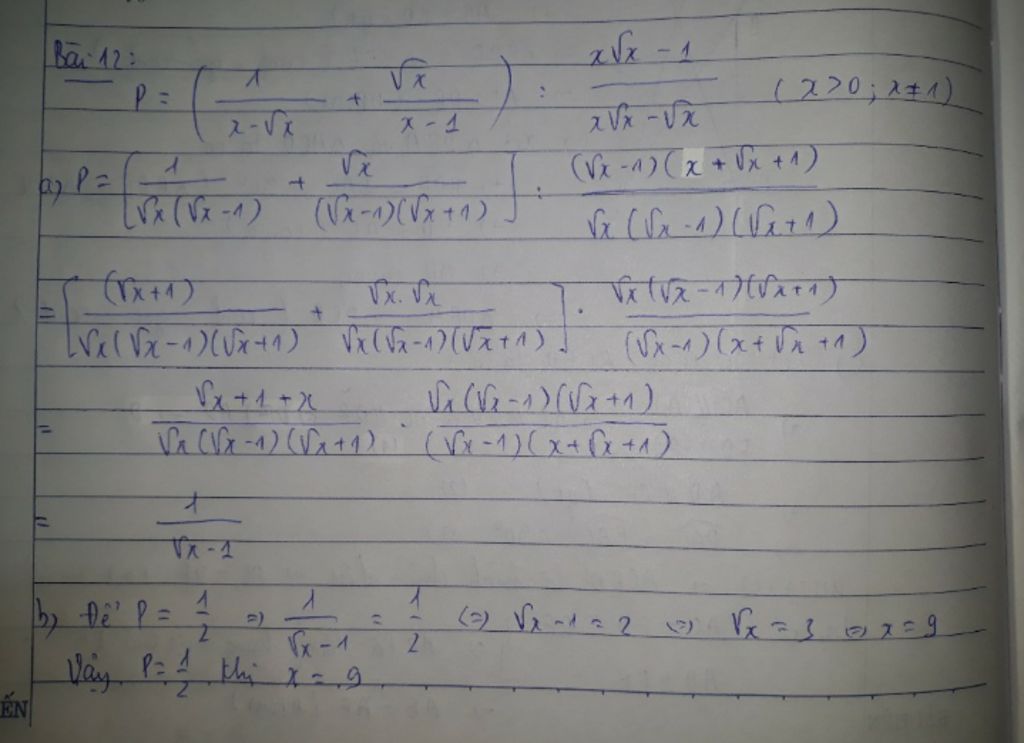 Bài 12:
P = ( 1/(x-√x) + √x/(x-1) ) : (x√x - 1)/(x√x - √x) (x>0; x≠1)
a) P = [ 1/(√x(√x-1)) + √x/((√x-1)(√x+1)) ] : ((√x-1)(x+√x+1))/(√x(√x-1)(√x+1))
= [ (√x+1)/(√x(√x-1)(√x+1)) + √x.√x/(√x(√x-1)(√x+1)) ] . (√x(√x-1)(√x+1))/((√x-1)(x+√x+1))
= (√x+1+x)/(√x(√x-1)(√x+1)) . (√x(√x-1)(√x+1))/((√x-1)(x+√x+1))
= 1/(√x-1)
b) Để P = 1/2 => 1/(√x-1) = 1/2 <=> √x-1 = 2 <=> √x = 3 <=> x = 9
Vậy P = 1/2 khi x = 9
ẾN